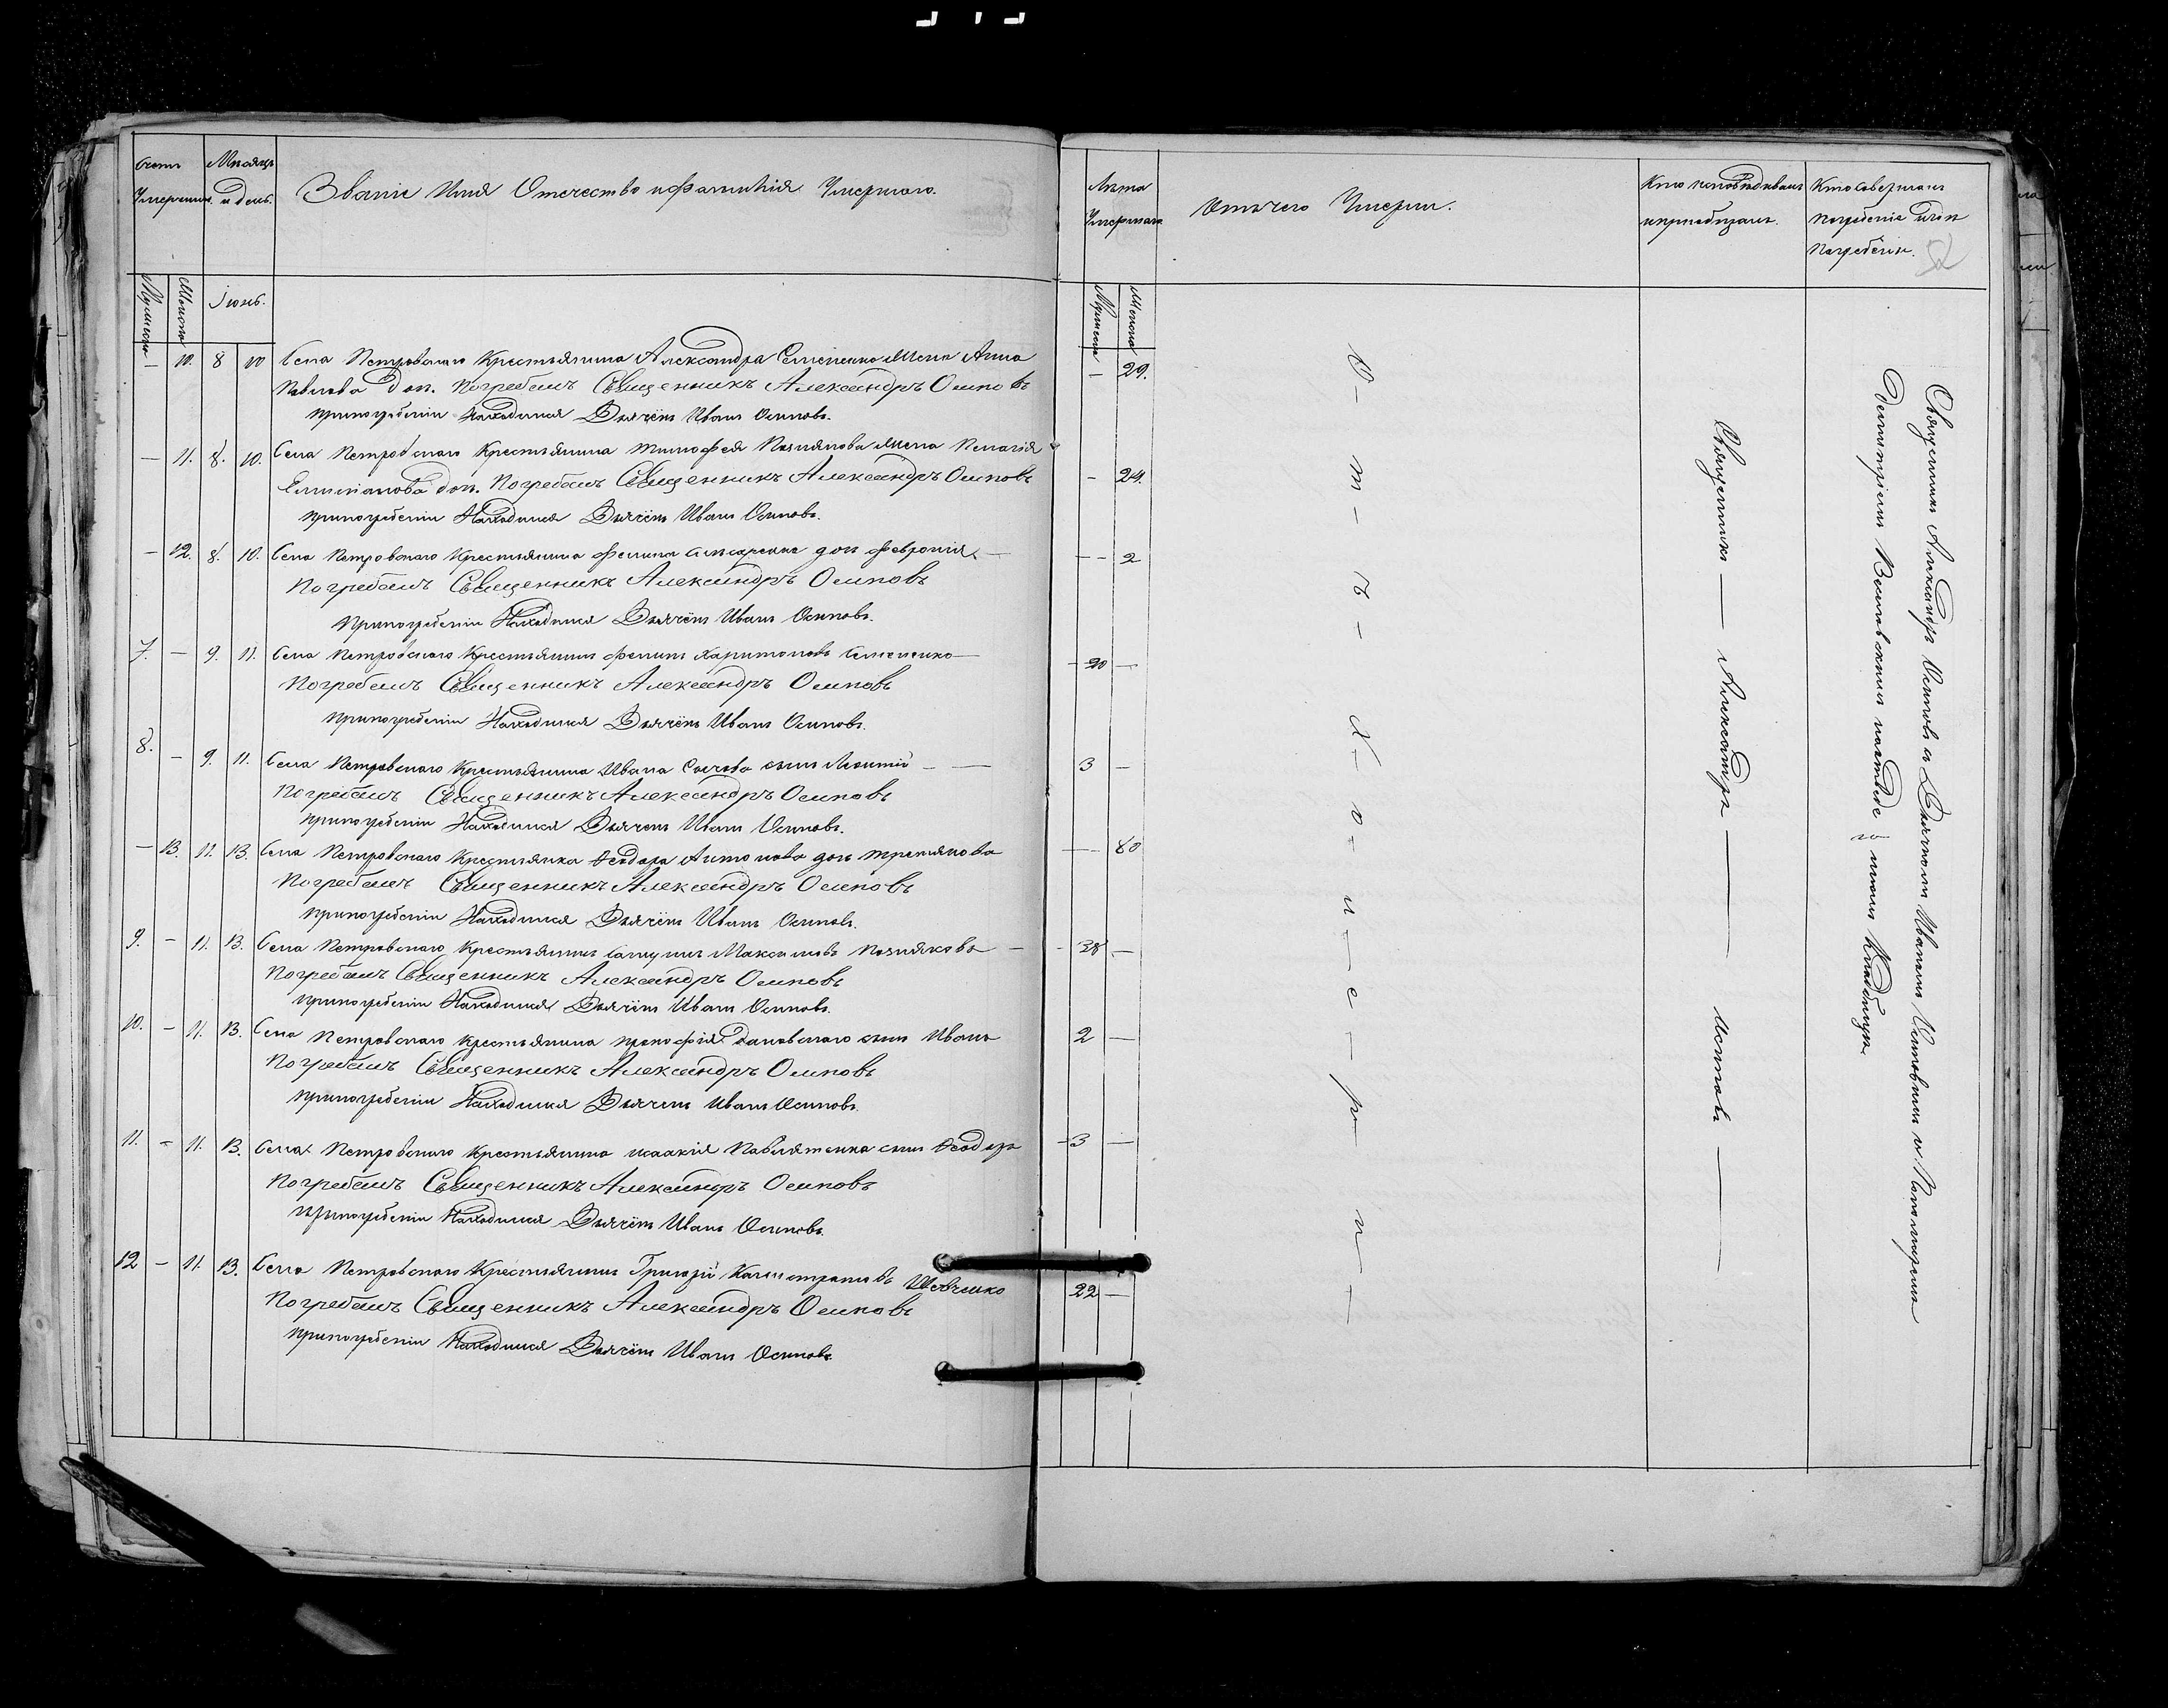 Счетъ
Умершихъ.
Мѣсяцъ
и день.
Званіе Имя Отечество и Фамилія Умершаго.
Лѣта
Умершаго
Отъ чего Умеръ.
Кто исповѣдывалъ
и пріобщалъ.
Кто совершалъ
погребеніе и гдѣ
погребены.
52
Мужеска
Женска
Іюнь.
Мужеска
Женска
— 10. 8 10 Села Петровскаго Крестьянина Александра Семененко Жена Анна — 29.
Павлова доч. Погребалъ Священникъ Александръ Осиповъ
при погребеніи Находился Дьячёкъ Иванъ Осиповъ.
— 11. 8. 10. Села Петровскаго Крестьянина Тимофея Познякова Жена Пелагія — 24.
доч. Погребалъ Священникъ Александръ Осиповъ
при погребеніи Находился Дьячёкъ Иванъ Осиповъ.
— 12. 8. 10. Села Петровскаго Крестьянина Филипа доч Февронія — — 2
Погребалъ Священникъ Александръ Осиповъ
при погребеніи Находился Дьячёкъ Иванъ Осиповъ.
7. — 9. 11. Села Петровскаго Крестьянинъ Филипъ Харитоновъ Семененко — 20 —
Погребалъ Священникъ Александръ Осиповъ
при погребеніи Находился Дьячёкъ Иванъ Осиповъ.
8. — 9. 11. Села Петровскаго Крестьянина Ивана сынъ Леонтій — 3 —
Погребалъ Священникъ Александръ Осиповъ
при погребеніи Находился Дьячекъ Иванъ Осиповъ.
— 13. 11. 13. Села Петровскаго Крестьянка Ѳеодора Антонова доч Третякова — 80
Погребалъ Священникъ Александръ Осиповъ
при погребеніи Находился Дьячёкъ Иванъ Осиповъ.
9. — 11. 13. Села Петровскаго Крестьянинъ Максимовъ Позняковъ — 38 —
Погребалъ Священникъ Александръ Осиповъ
при погребеніи Находился Дьячёкъ Иванъ Осиповъ.
10. — 11. 13. Села Петровскаго Крестьянина Прокофія сынъ Иванъ 2 —
Погребалъ Священникъ Александръ Осиповъ
при погребеніи Находился Дьячекъ Иванъ Осиповъ.
11. — 11. 13. Села Петровскаго Крестьянина Исаакія Павлятенка сынъ Ѳеодоръ — 3 —
Погребалъ Священникъ Александръ Осиповъ
при погребеніи Находился Дьячёкъ Иванъ Осиповъ.
12 — 11. 13. Села Петровскаго Крестьянинъ Григорій Калистратовъ Шевченко 22 —
Погребалъ Священникъ Александръ Осиповъ
при погребеніи Находился Дьячёкъ Иванъ Осиповъ
О — т — ъ — Х — о — л — е — р — ы —
Священникъ — Александръ — Осиповъ —
Священникъ Александръ Осиповъ съ Дьячкомъ Иваномъ Осиповымъ и Пономаремъ
Димитріемъ на кладбищѣ